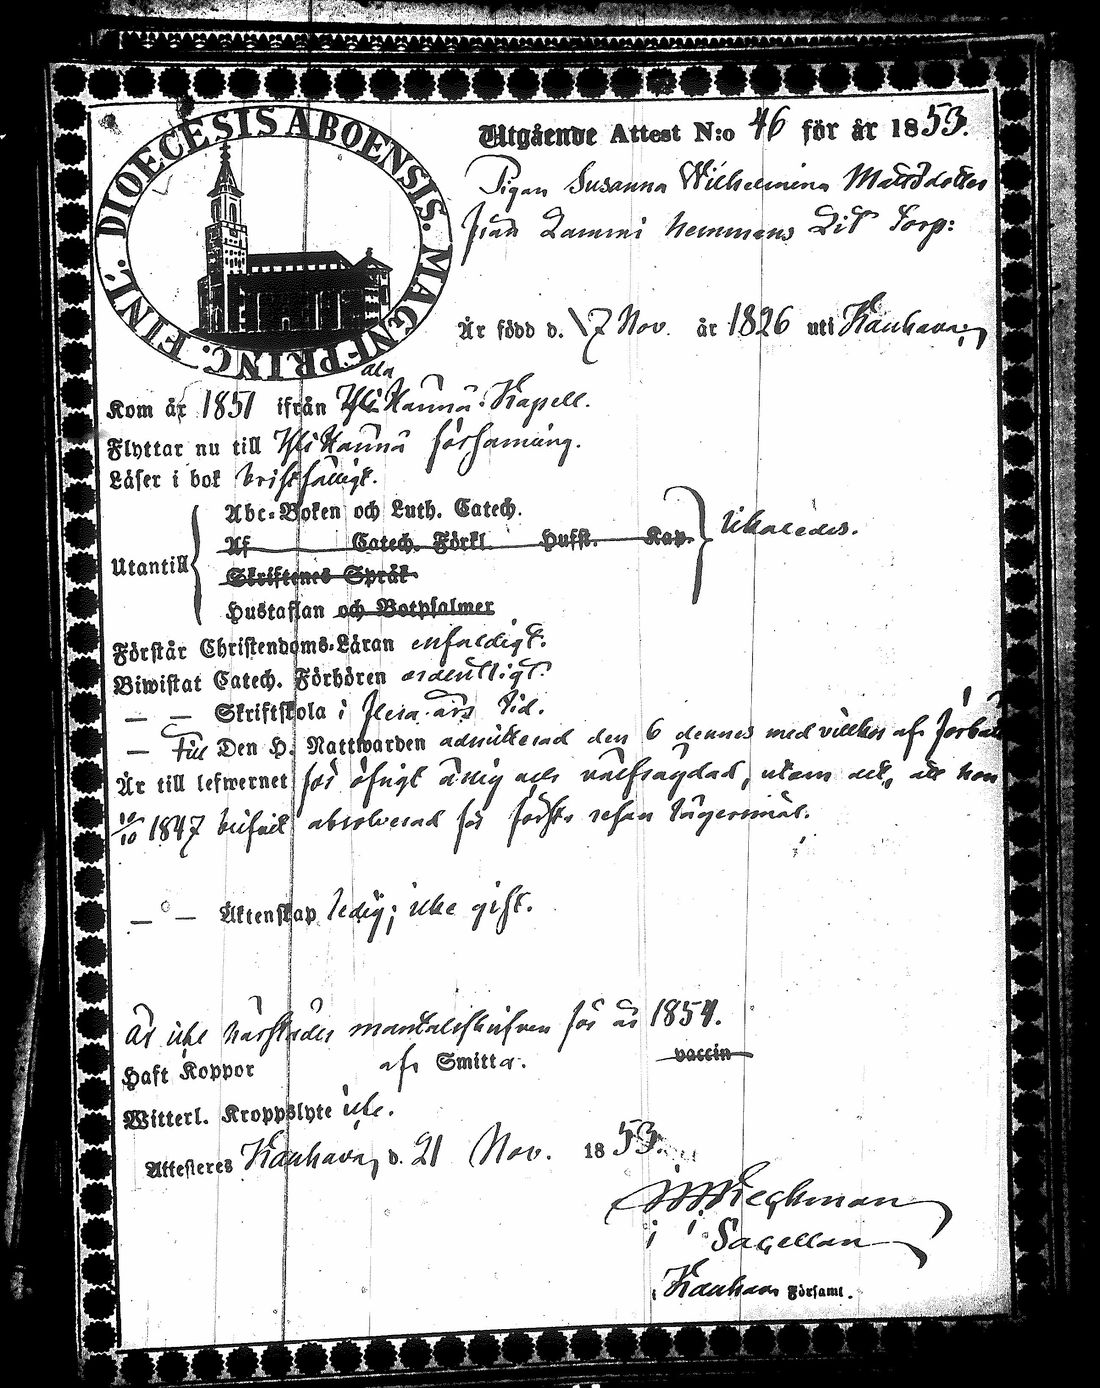 DIOECESIS ABOENSIS. MAGNI PRINC. FINL.
Utgående Attest N:o 46 för år 1853.
Pigan Susanna Wilhelmina Mattsdotter
från Lammi hemmans Torp:
Är född d. 17 Nov. år 1826 uti Kauhava,
Kom år 1851 ifrån Ala Härmä Kapell.
Flyttar nu till Yli Härmä församling.
Läser i bok bristfälligt.
Abc-Boken och Luth. Catech.
Af Catech. Förkl. Hufst. Kap.
likaledes.
Utantill
Skriftenes Språk
Hustaflan och Botpsalmer
Förstår Christendoms-Läran enfaldigt.
Biwistat Catech. Förhören ordentligt.
— — Skriftskola i flera års tid.
— Till Den H. Nattwarden admitterad den 6 dennes med villkor af
Är till lefwernet för öfrigt ärlig och välfrägdad, utom att, att hon
1847 absolverad för första resan lägersmål.
— — Äktenskap ledig; icke gift.
Är icke härstädes mantalsskrifven för år 1854.
Haft Koppor af Smitta. vaccin
Witterl. Kroppslyte icke.
Attesteres Kauhava, d. 21 Nov. 1853.
Sacellan
i Kauhava Församl.